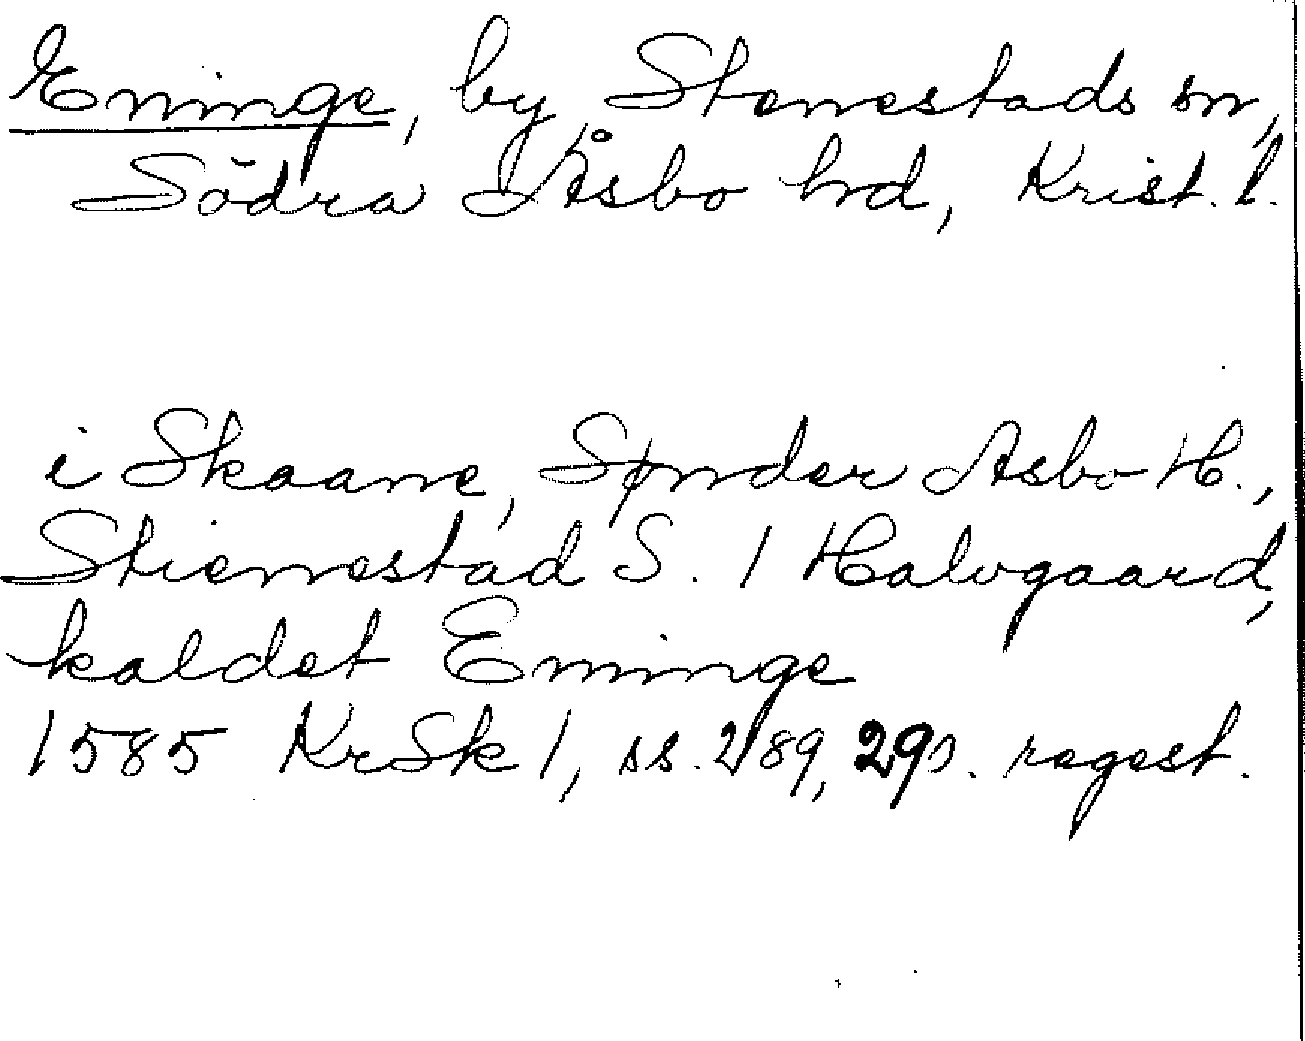 Eninge, by, Stenestads sn,
Södra Åsbo hd, Krist. l.
i Skaane, Sønder Asbo H.,
Stienestad S. 1 Halvgaard,
kaldet Eninge
1585 KrSk 1, ss. 289, 290. regest.